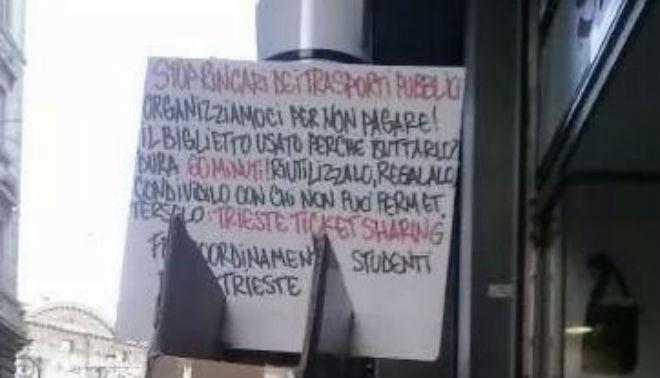 STOP RINCARI DEI TRASPORTI PUBBLICI
ORGANIZZIAMOCI PER NON PAGARE!
IL BIGLIETTO USATO PERCHE BUTTARLO?
DURA 60 MINUTI! RIUTILIZZALO, REGALALO,
CONDIVIDILO CON CHI NON PUO' PERMET.
TERSELO: TRIESTE TICKET SHARING
STUDENTI
TRIESTE